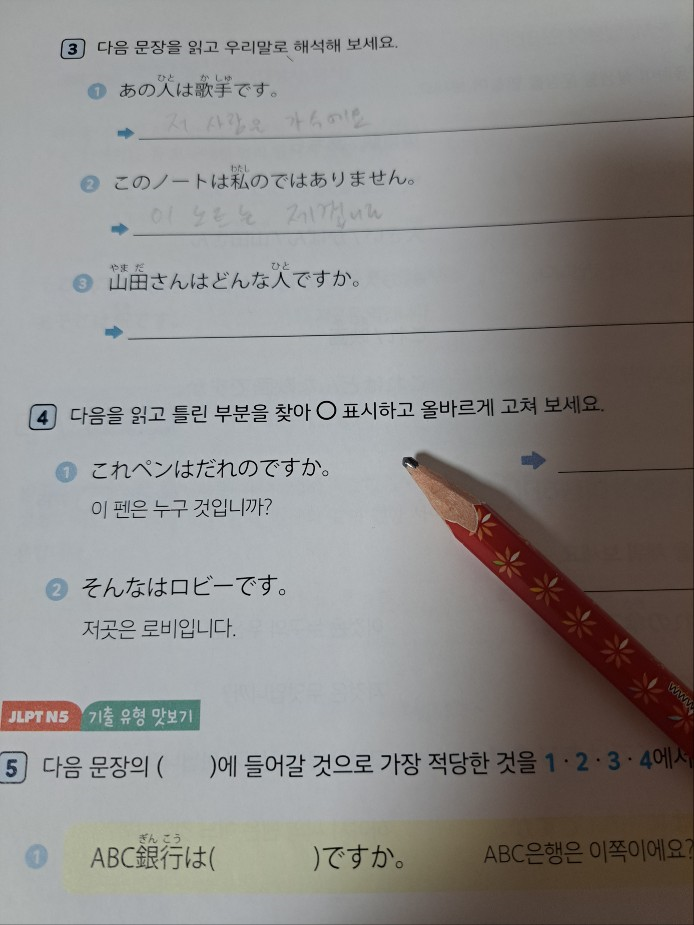 3 다음 문장을 읽고 우리말로 해석해 보세요.
ひと か しゅ
1 あの人は歌手です。
저 사람은 가수에요
わたし
2 このノートは私のではありません。
이 노트는
やま だ ひと
3 山田さんはどんな人ですか。
4 다음을 읽고 틀린 부분을 찾아 ○ 표시하고 올바르게 고쳐 보세요.
1 これペンはだれのですか。
이 펜은 누구 것입니까?
2 そんなはロビーです。
저곳은 로비입니다.
JLPT N5 기출 유형 맛보기
5 다음 문장의 ( )에 들어갈 것으로 가장 적당한 것을 1·2·3·4에서
ぎん こう
1 ABC銀行は( )ですか。 ABC은행은 이쪽이에요?
www